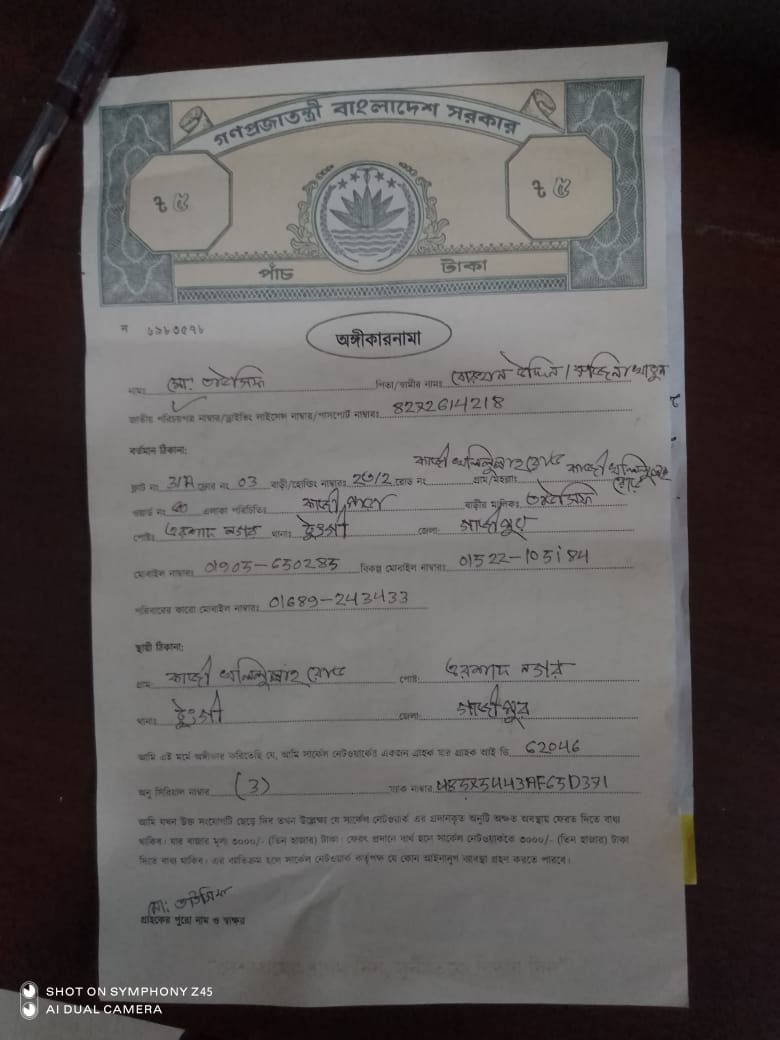 গণপ্রজাতন্ত্রী বাংলাদেশ সরকার
৳ ৫ ৳ ৫
পাঁচ টাকা
অঙ্গীকারনামা
নামঃ মো: তৌসিফ পিতা/স্বামীর নামঃ
জাতীয় পরিচয়পত্র নাম্বার/ড্রাইভিং লাইসেন্স নাম্বার/পাসপোর্ট নাম্বারঃ 8272614218
বর্তমান ঠিকানা:
ফ্লাট নং 3/A ফ্লোর নং 03 বাড়ী/হোল্ডিং নাম্বারঃ ২৩/2 রোড নং কাজী খলিলুল্লাহ রোড গ্রাম/মহল্লাঃ কাজী খলিলুল্লাহ রোড
ওয়ার্ড নং এলাকা পরিচিতিঃ কাজী পাড়া বাড়ীর মালিকঃ তৌসিফ
পোষ্টঃ এরশাদ নগর থানাঃ টুংগী জেলা: গাজীপুর
মোবাইল নাম্বারঃ 01903-650285 বিকল্প মোবাইল নাম্বারঃ 01522-105184
পরিবারের কারো মোবাইল নাম্বারঃ 01689-243433
স্থায়ী ঠিকানা:
গ্রামঃ কাজী খলিলুল্লাহ রোড পোষ্ট: এরশাদ নগর
থানাঃ টুংগী জেলা: গাজীপুর
আমি এই মর্মে অঙ্গীকার করিতেছি যে, আমি সার্কেল নেটওয়ার্কের একজন গ্রাহক যার গ্রাহক আই ডি 62046
অনু সিরিয়াল নাম্বার (3) ম্যাক নাম্বার
আমি যখন উক্ত সংযোগটি ছেড়ে দিব তখন উল্লেক্ষ্য যে সার্কেল নেটওয়ার্ক এর প্রদানকৃত অনুটি অক্ষত অবস্থায় ফেরত দিতে বাধ্য
থাকিব। যার বাজার মূল্য ৩০০০/- (তিন হাজার) টাকা। ফেরৎ প্রদানে ব্যর্থ হলে সার্কেল নেটওয়ার্ককে ৩০০০/- (তিন হাজার) টাকা
দিতে বাধ্য থাকিব। এর ব্যতিক্রম হলে সার্কেল নেটওয়ার্ক কর্তৃপক্ষ যে কোন আইনানুগ ব্যবস্থা গ্রহণ করতে পারবে।
মো: তৌসিফ
গ্রাহকের পুরো নাম ও স্বাক্ষর
SHOT ON SYMPHONY Z45
AI DUAL CAMERA